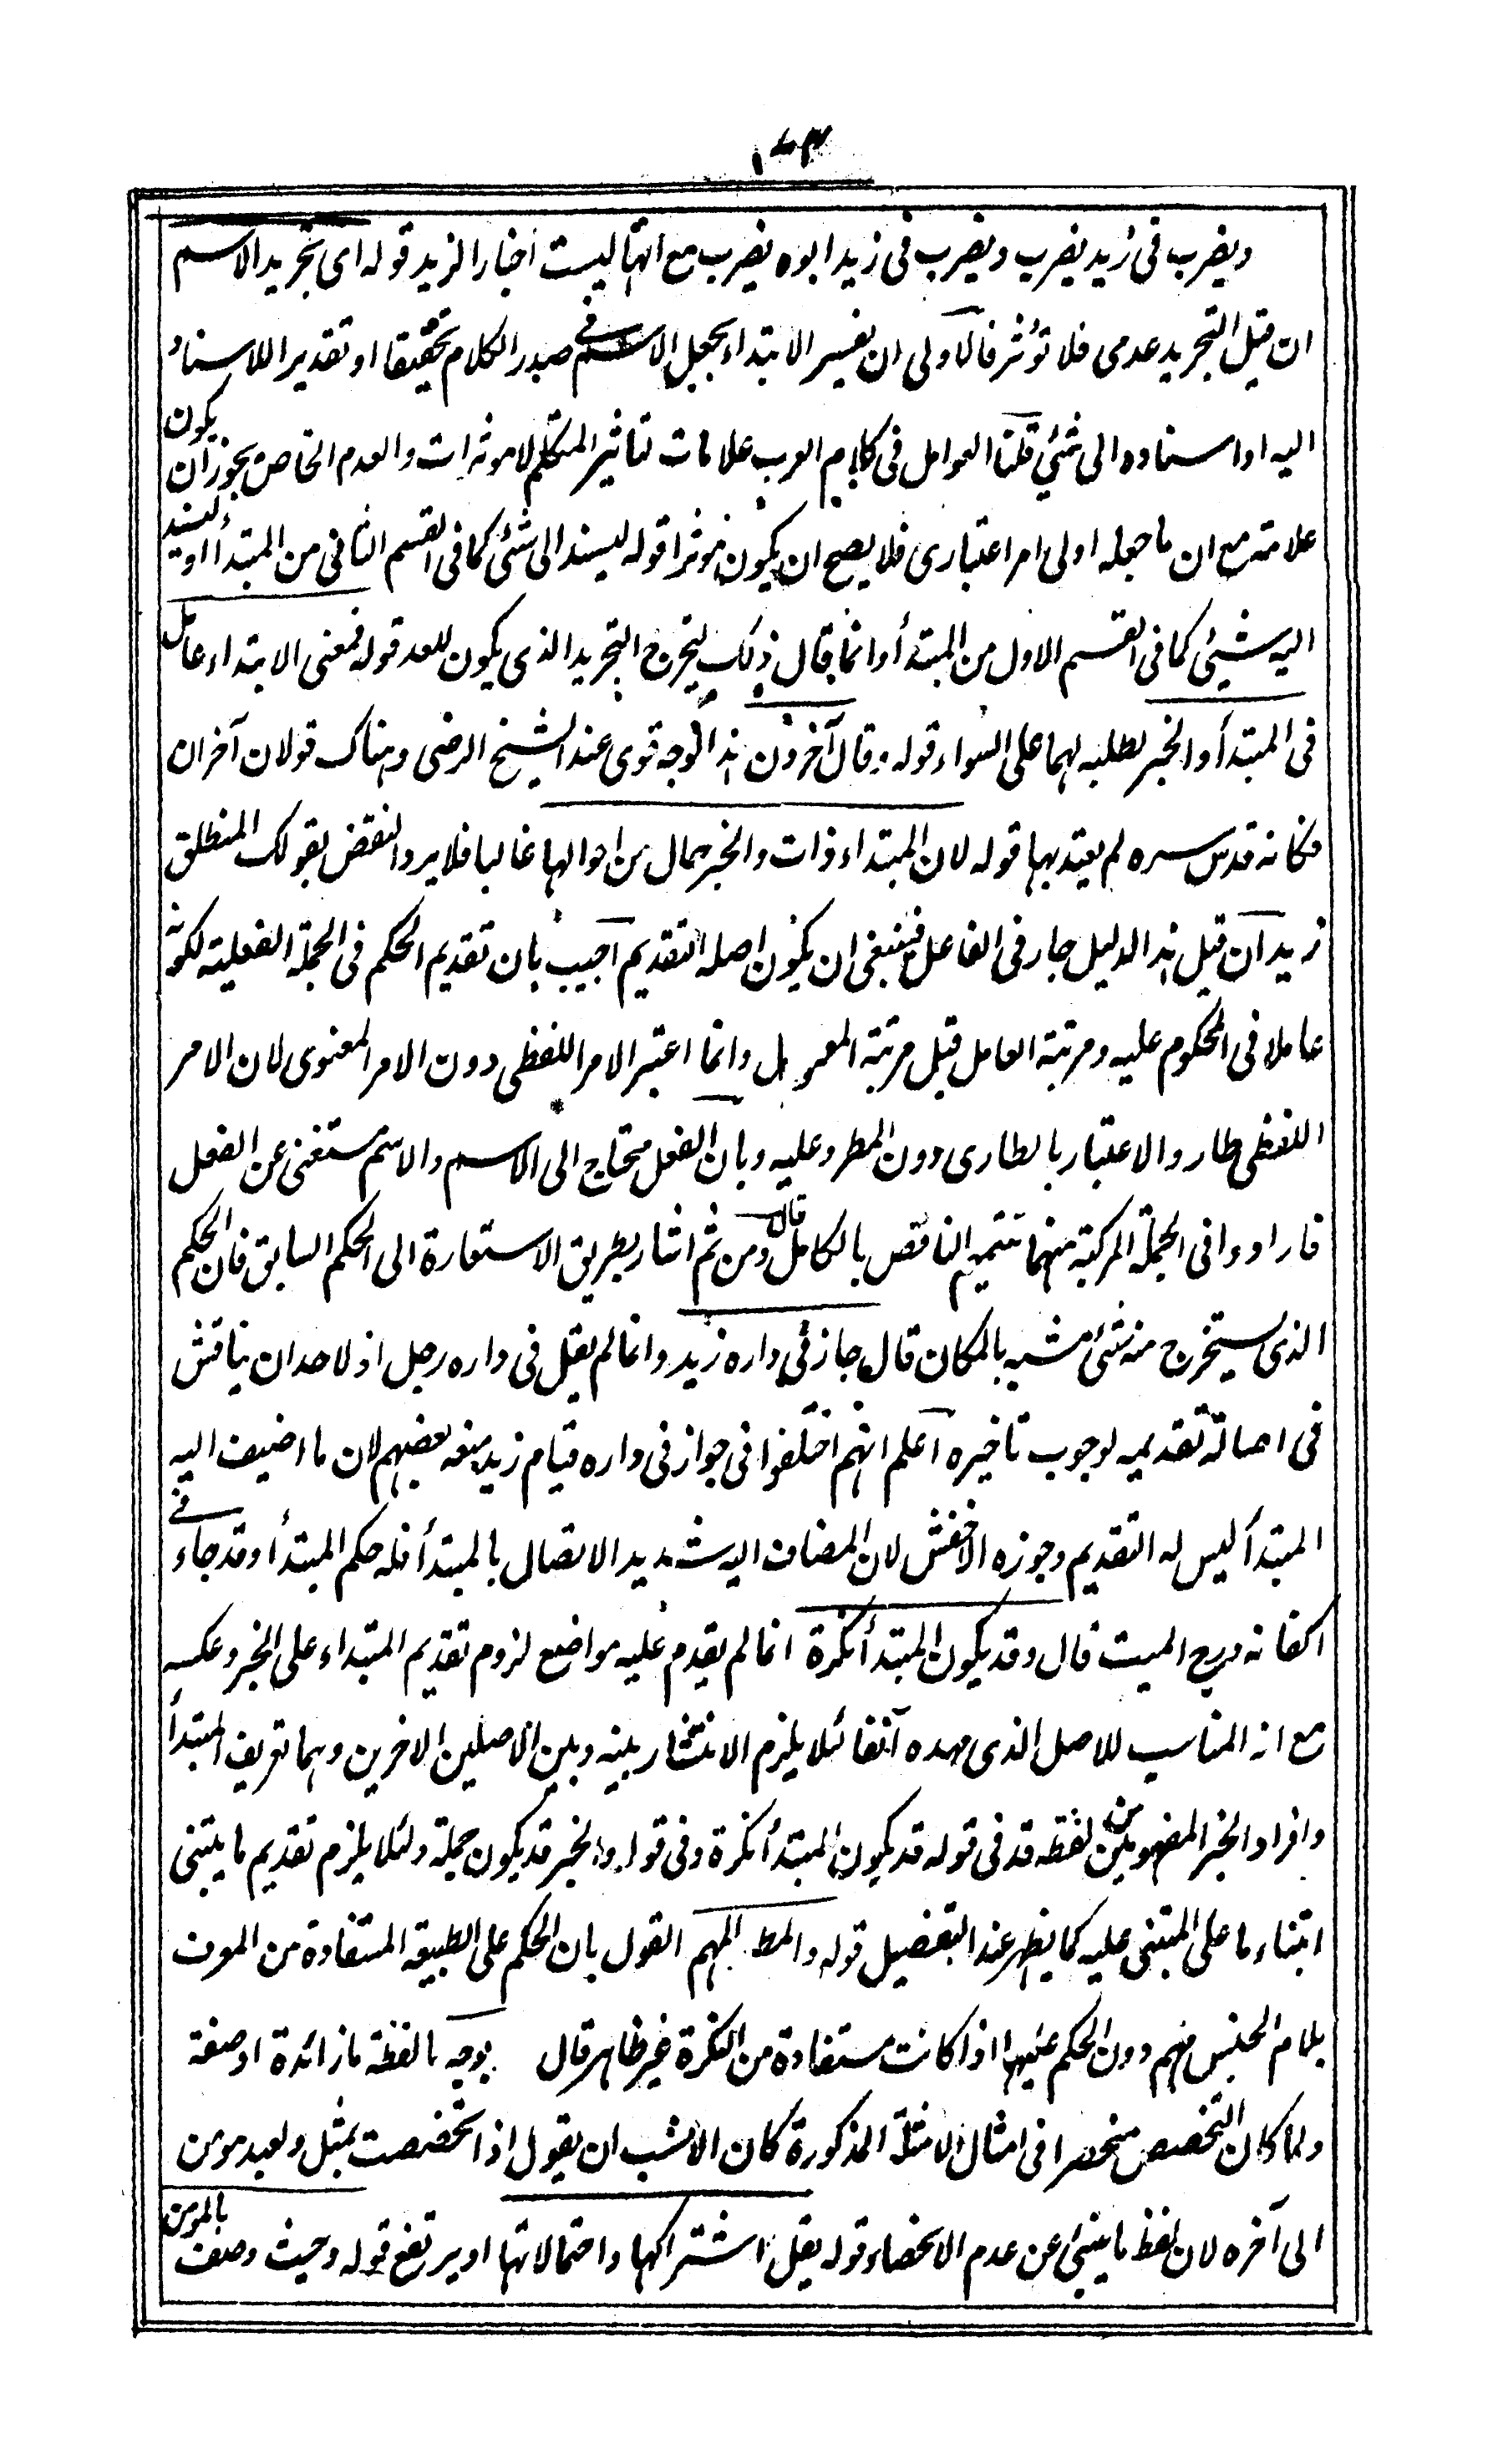 ١٠٣
ويضرب فى زيد يضرب ويضرب فى زيد ابوه يضرب مع انها ليست اخبارا لزيد قوله اى تجريد الاسم
ان قيل التجريد عدمى فلا تؤثر فالاولى ان يفسير الابتداء بجعل الاسم فى صدر الكلام تحقيقا او تقديرا للاسناد
اليه او اسناده الى شئ قلنا العوامل فى كلام العرب علامات لتاثير المتكلم لا موثرات والعدم الخاص يجوز ان يكون
علامته مع ان ما جعله اولى امر اعتبارى فلا يصح ان يكون موثرا قوله ليسند الى شئ كما فى القسم الثانى من المبتدأ او ليسند
اليه شئ كما فى القسم الاول من المبتدأ وانما قال ذلك ليخرج التجريد الذى يكون للعد قوله فمعنى الابتداء عامل
فى المبتدأ والخبر لطلبه لهما على السواء قوله وقال آخرون هذا الوجه قوى عند الشيخ الرضى وهناك قولان آخران
فكانه قدس سره لم يعتد بها قوله لان المبتداء ذات والخبر حال من احوالها غالبا فلا يرد النقض بقولك المنطلق
زيد ان قيل هذا الدليل جار فى الفاعل فينبغى ان يكون اصله التقديم اجيب بان تقديم الحكم فى الجملة الفعلية لكونه
عاملا فى المحكوم عليه ومرتبة العامل قبل مرتبة المعمول وانما اعتبر الامر اللفظى دون الامر المعنوى لان الامر
اللفظى طار والاعتبار بالطارى دون المطرو عليه وبان الفعل محتاج الى الاسم والاسم مستغنى عن الفعل
فارادوا فى الجملة المركبة منهما تتميم الناقص بالكامل قال ومن ثم اشار بطريق الاستعارة الى الحكم السابق فان الحكم
الذى يستخرج منه شئ مشبه بالمكان قال جاز فى داره زيد وانما لم يقل فى داره رجل اذ لاحد ان يناقش
فى اصالة تقديمه لوجوب تاخيره اعلم انهم اختلفوا فى جواز فى داره قيام زيد منعه بعضهم لان ما اضيف اليه
المبتدأ ليس له التقديم وجوزه الاخفش لان المضاف اليه شديد الاتصال بالمبتدأ فله حكم المبتدأ وقد جاء فى
اكفانه درج الميت قال وقد يكون المبتدأ نكرة انما لم يقدم عليه مواضع لزوم تقديم المبتداء على الخبر وعكسه
مع انه المناسب للاصل الذى مهده آنفا لئلا يلزم الانتشار بينه وبين الاصلين الاخرين وهما تعريف المبتدأ
وافراد الخبر المفهومين من لفظه قد فى قوله قد يكون المبتدأ نكرة وفى قوله والخبر قد يكون جملة ولئلا يلزم تقديم ما يبتنى
ابتناء ما على المبتنى عليه كما يظهر عند التفصيل قوله والمط المهم القول بان الحكم على الطبيعة المستفادة من المعرف
بلام الجنس مهم دون الحكم عليها اذا كانت مستفادة من النكرة غير ظاهر قال بوجه ما لفظة ما زائدة او صفة
ولما كان التخصص منحصرا فى امثال الامثلة المذكورة كان الانسب ان يقول اذا تخصصت بمثل ولعبد مومن
الى آخره لان لفظ ما ينبئ عن عدم الانحصار قوله يقل اشتراكها واحتمالاتها او يرتفع قوله وحيث وصف بالمومن